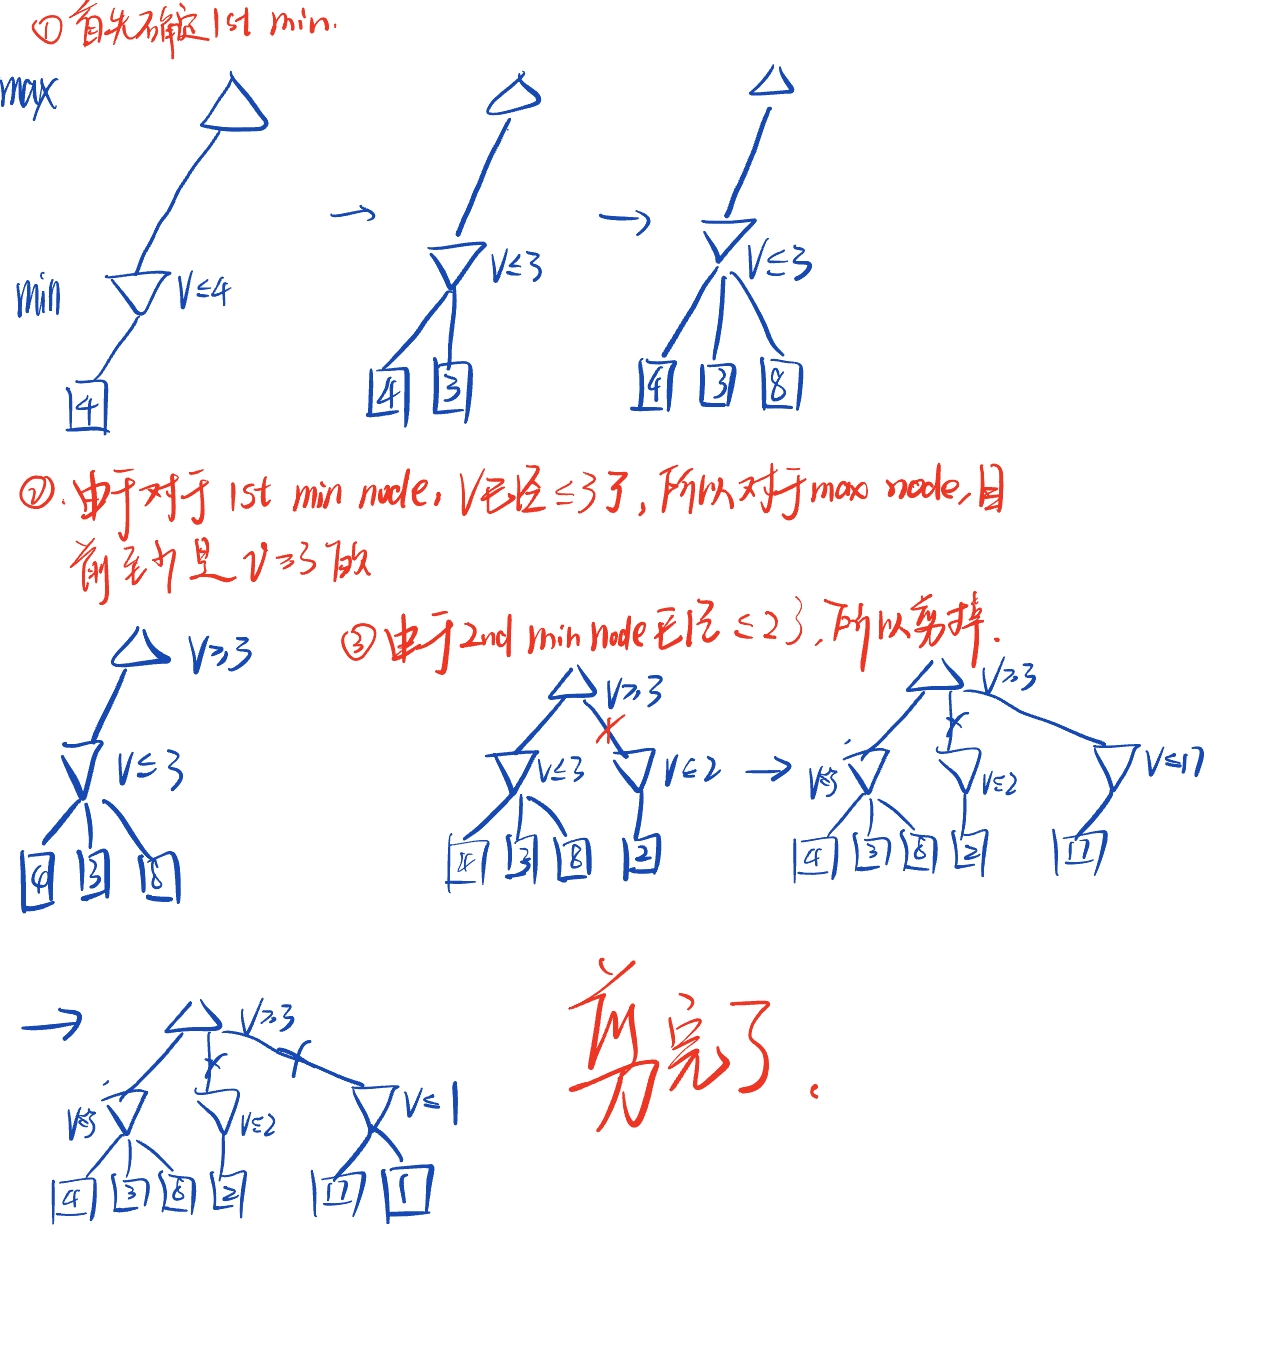 ① 首先确定 1st min.
max
min V≤4
4
→
V≤3
4 3
→
V≤3
4 3 8
②. 由于对于 1st min node, V已经≤3了, 所以对于max node, 目
前至少是 V≥3 的
V≥3
V≤3
4 3 8
③ 由于 2nd min node 已经 ≤2了, 所以剪掉.
V≥3
V≤3 V≤2
4 3 8 2
→
V≥3
V≤3 V≤2 V≤17
4 3 8 2 17
→
V≥3
V≤3 V≤2 V≤1
4 3 8 2 17 1
剪完了.